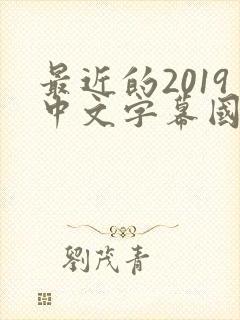 最近的2019
中文字幕國
劉茂青